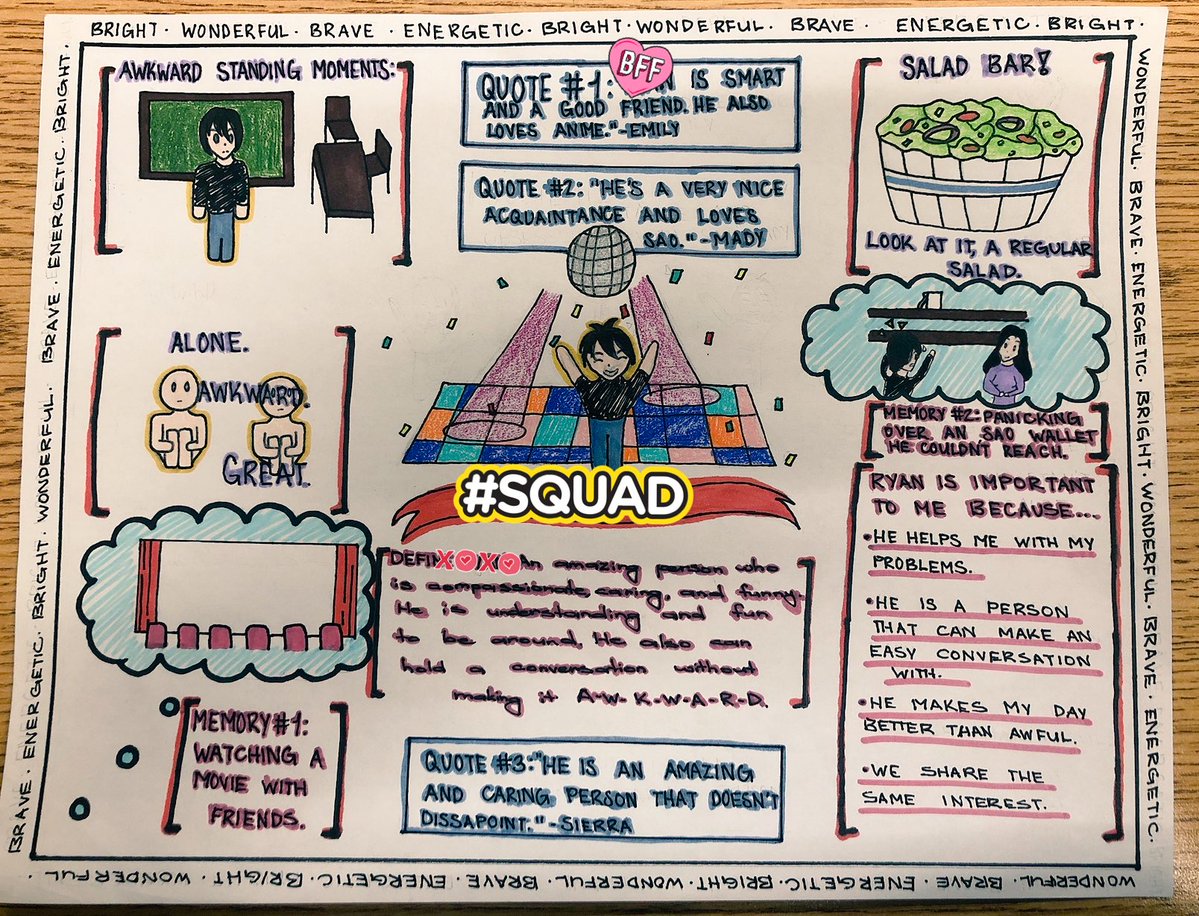 BRIGHT · WONDERFUL · BRAVE · ENERGETIC · BRIGHT · WONDERFUL · BRAVE · ENERGETIC · BRIGHT ·
AWKWARD STANDING MOMENTS:
BFF
QUOTE #1: IS SMART
AND A GOOD FRIEND. HE ALSO
LOVES ANIME."-EMILY
QUOTE #2: "HE'S A VERY NICE
ACQUAINTANCE AND LOVES
SAO."-MADY
SALAD BAR!
LOOK AT IT, A REGULAR
SALAD.
ALONE.
AWKWARD.
GREAT.
#SQUAD
MEMORY #2: PANICKING
OVER AN SAO WALLET
HE COULDNT REACH.
RYAN IS IMPORTANT
TO ME BECAUSE...
• HE HELPS ME WITH MY
PROBLEMS.
• HE IS A PERSON
THAT CAN MAKE AN
EASY CONVERSATION
WITH.
• HE MAKES MY DAY
BETTER THAN AWFUL.
• WE SHARE THE
SAME INTEREST.
XOXO An amazing person who
is compassionate, caring, and funny.
He is understanding and fun
to be around. He also can
hold a conversation without
making it A-W-K-W-A-R-D.
MEMORY #1:
WATCHING A
MOVIE WITH
FRIENDS.
QUOTE #3: "HE IS AN AMAZING
AND CARING PERSON THAT DOESN'T
DISSAPOINT."-SIERRA
WONDERFUL · BRAVE · ENERGETIC · BRIGHT · WONDERFUL · BRAVE · ENERGETIC ·
WONDERFUL · BRAVE · ENERGETIC · BRIGHT · WONDERFUL · BRAVE · ENERGETIC · BRIGHT · WONDERFUL ·
BRAVE · ENERGETIC · BRIGHT · WONDERFUL · BRAVE · ENERGETIC · BRIGHT ·